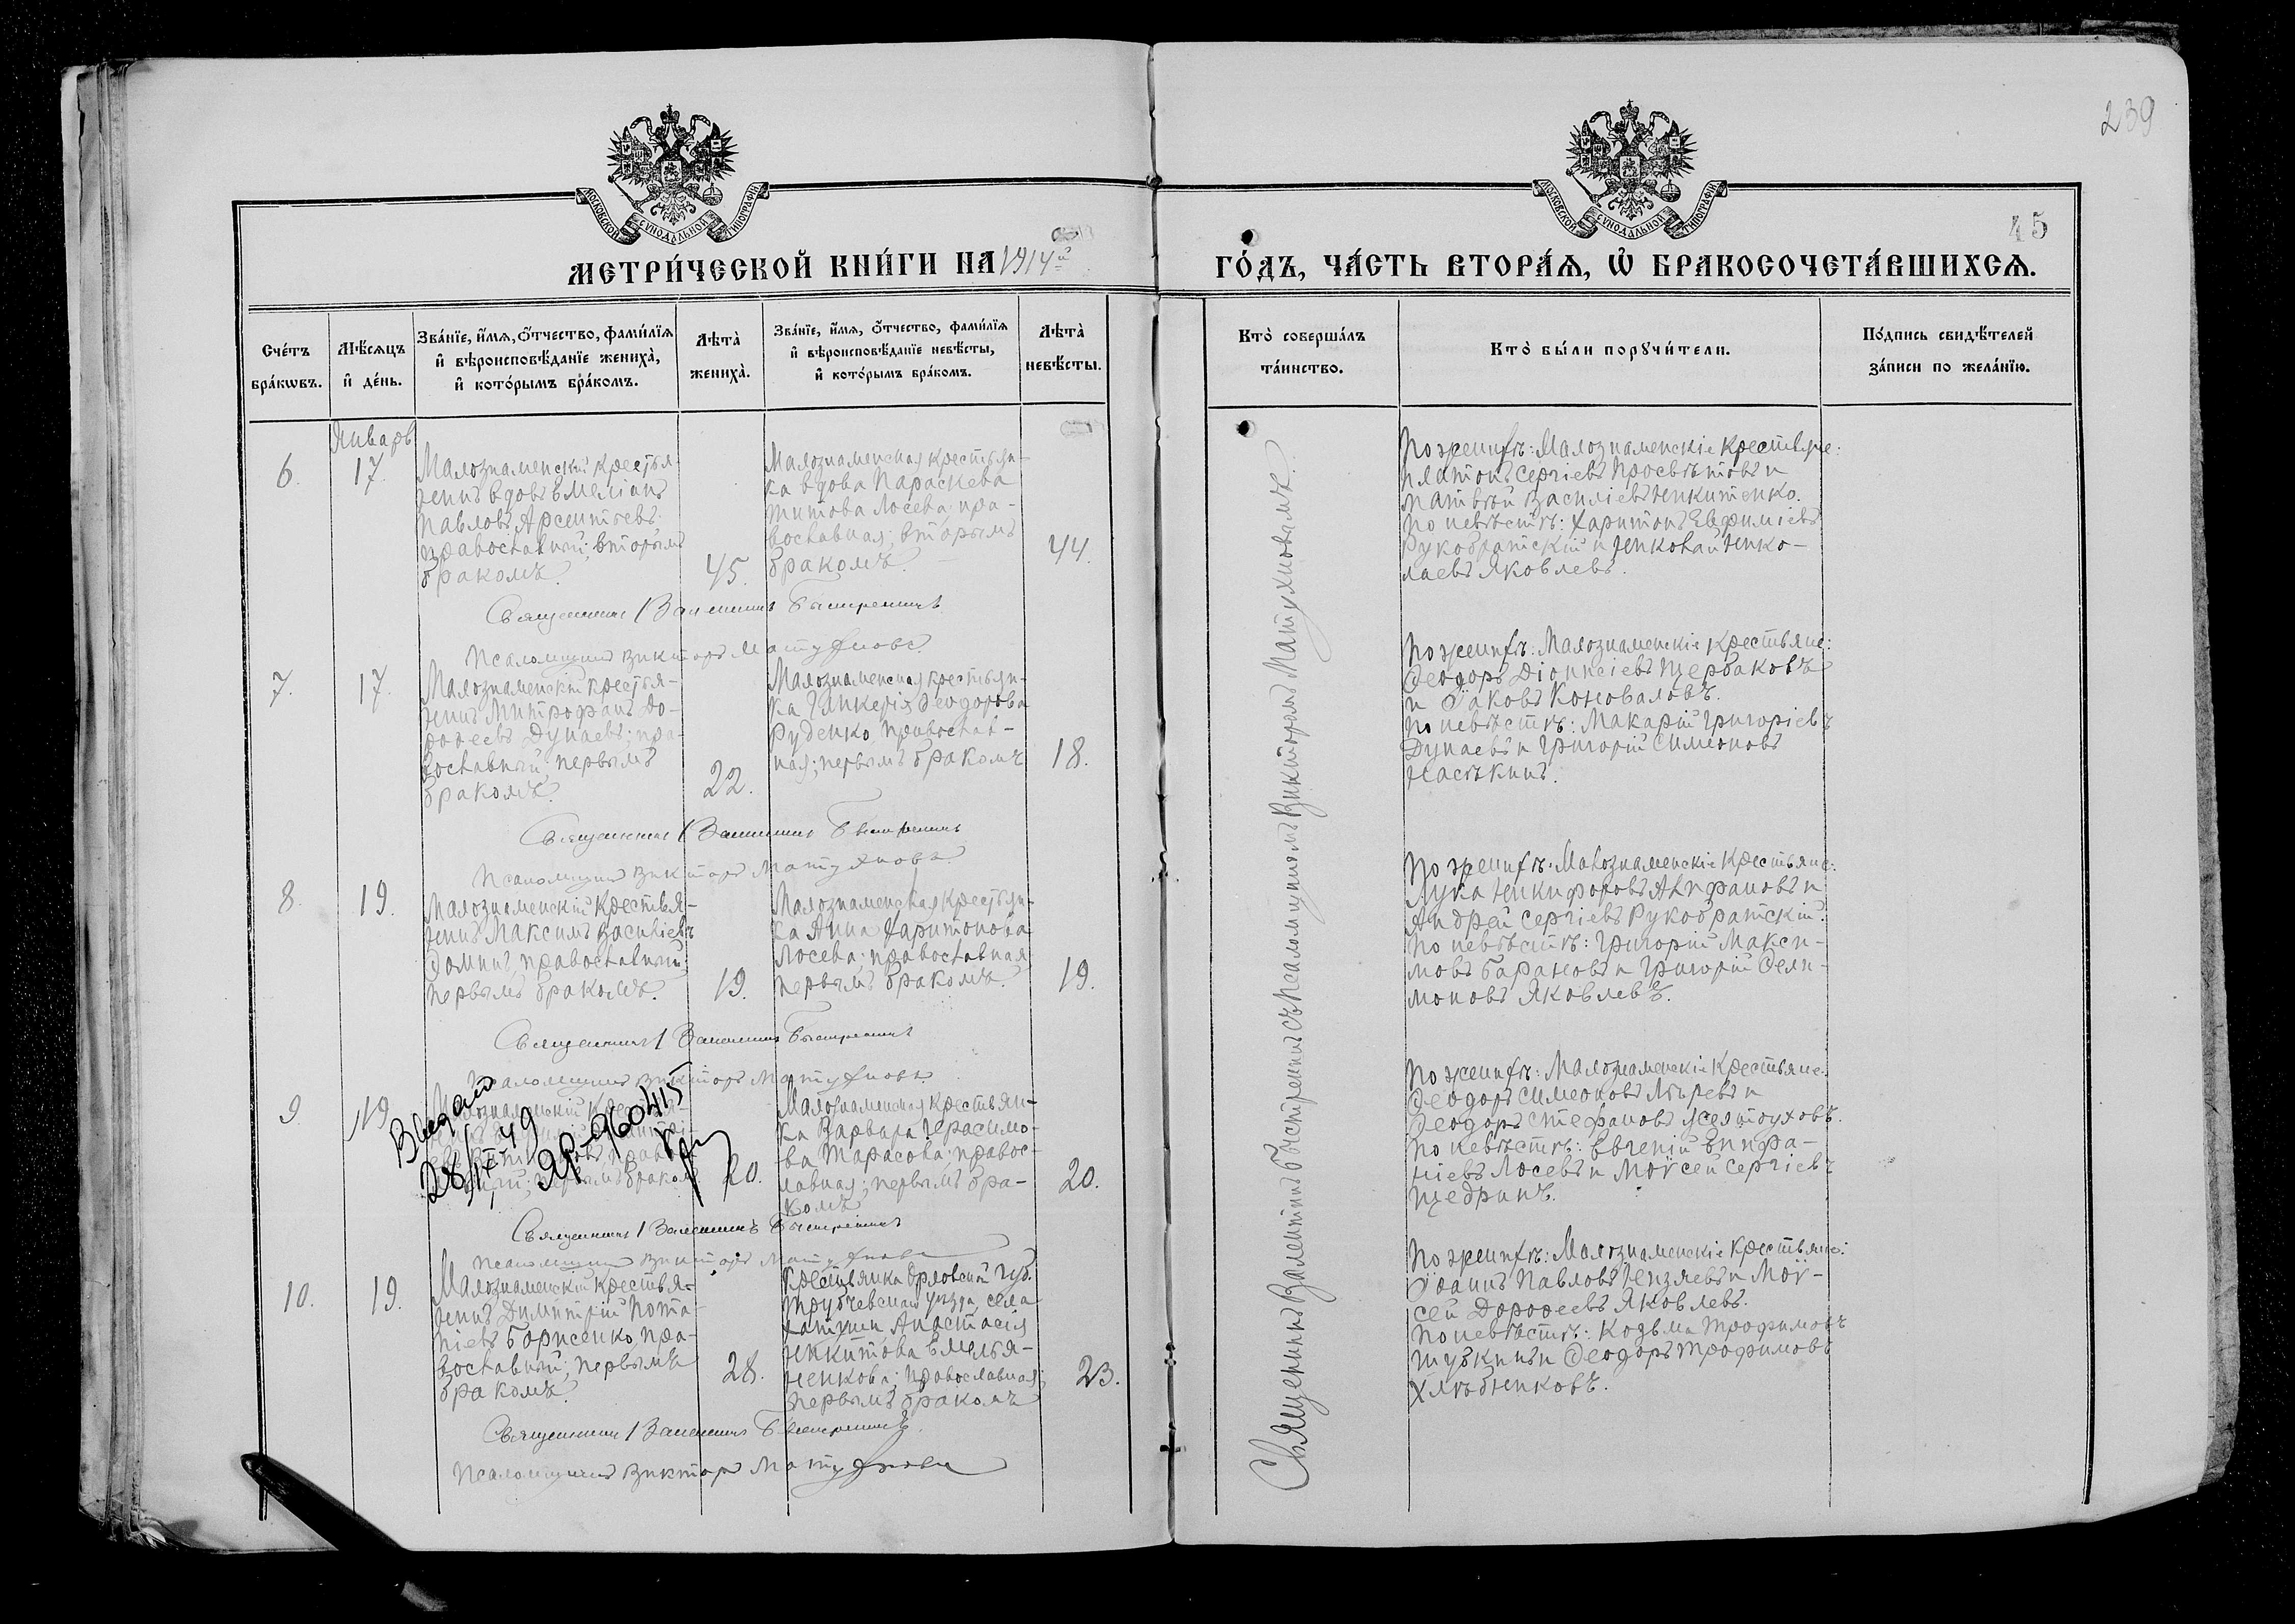 239
МОСКОВСКОЙ СѴНОДАЛЬНОЙ ТИПОГРАФІИ
МОСКОВСКОЙ СѴНОДАЛЬНОЙ ТИПОГРАФІИ
45
МЕТРИ́ЧЕСКОЙ КНИ́ГИ НА 1914й
ГО́ДЪ, ЧА́СТЬ ВТОРА́Ѧ, Ѽ БРАКОСОЧЕТА́ВШИХСѦ.
Сче́тъ бра́кѡвъ.
Мѣ́сѧцъ и҆ де́нь.
Зва́нїе, и҆́мѧ, ѻ҆́тчество, фами́лїѧ
и҆ вѣроисповѣ́данїе жениха̀,
и҆ кото́рымъ бра́комъ.
Лѣта̀ жениха̀.
Зва́нїе, и҆́мѧ, ѻ҆́тчество, фами́лїѧ
и҆ вѣроисповѣ́данїе невѣ́сты,
и҆ кото́рымъ бра́комъ.
Лѣта̀ невѣ́сты.
Кто̀ соверша́лъ та́инство.
Кто̀ бы́ли порꙋчи́тели.
По́дпись свидѣ́телей за́писи по жела́нїю.
Январь
6.
17.
Малознаменскій крестья-
нинъ вдовъ Емеліанъ
Павловъ Арсентьевъ;
православный; вторымъ
бракомъ.
45.
Малознаменская крестьян-
ка вдова Параскева
Титова Лосева; пра-
вославная; вторымъ
бракомъ.
44.
По женихѣ: Малознаменскіе крестьяне:
Платонъ Сергіевъ Просвѣтовъ и
Матвѣй Василіевъ Никитенко.
По невѣстѣ: Харитонъ Евфиміевъ
Рукобратскій и Николай Нико-
лаевъ Яковлевъ.
Священникъ Валентинъ Быстрицкій
Псаломщикъ Викторъ Матухновъ.
7.
17.
Малознаменскій крестья-
нинъ Митрофанъ До-
роѳеевъ Дунаевъ; пра-
вославный; первымъ
бракомъ.
22.
Малознаменская крестьян-
ка Гликерія Ѳеодорова
Руденко, православ-
ная; первымъ бракомъ
18.
По женихѣ: Малознаменскіе крестьяне:
Ѳеодоръ Діонисіевъ Щербаковъ
и Іаковъ Коноваловъ.
По невѣстѣ: Макарій Григоріевъ
Дунаевъ и Григорій Симеоновъ
Насѣкинъ.
Священникъ Валентинъ
Псаломщикъ Викторъ Матухновъ.
8.
19.
Малознаменскій крестья-
нинъ Максимъ Василіевъ
Ѳоминъ, православный;
первымъ бракомъ.
19.
Малознаменская крестьян-
ка Анна Харитонова
Лосева; православная
первымъ бракомъ.
19.
По женихѣ: Малознаменскіе крестьяне:
Лука Никифоровъ Агифановъ и
Андрей Сергіевъ Рукобратскій.
По невѣстѣ: Григорій Макси-
мовъ Барановъ и Григорій Фили-
моновъ Яковлевъ.
Священникъ Валентинъ
Псаломщикъ Викторъ Матухновъ.
9.
19.
Малознаменскій крестья-
первымъ бракомъ
20.
Малознаменская крестьян-
ка Варвара Герасимо-
ва Тарасова; правос-
лавная; первымъ бра-
комъ
20.
По женихѣ: Малознаменскіе крестьяне:
Ѳеодоръ Симеоновъ и
Ѳеодоръ Стефановъ Желтоуховъ.
По невѣстѣ: Евгеній Епифа-
ніевъ Лосевъ и Моѵсей Сергіевъ
Щедринъ.
Священникъ Валентинъ
Псаломщикъ Викторъ Матухновъ
10.
19.
Малознаменскій крестья-
нинъ Димитрій Пота-
піевъ Борисенко, пра-
вославный; первымъ
бракомъ.
28.
Крестьянка Орловской губ.
Трубчевскаго уѣзда, села
Анастасія
Никитова Емелья-
ненкова; православная;
первымъ бракомъ
23.
По женихѣ: Малознаменскіе крестьяне:
Іоаннъ Павловъ Низяевъ и Моѵ-
сей Дороѳеевъ Яковлевъ.
По невѣстѣ: Козьма Трофимовъ
Шуткинъ и Ѳеодоръ Трофимовъ
Хлѣбниковъ.
Священникъ Валентинъ
Псаломщикъ Викторъ Матухновъ